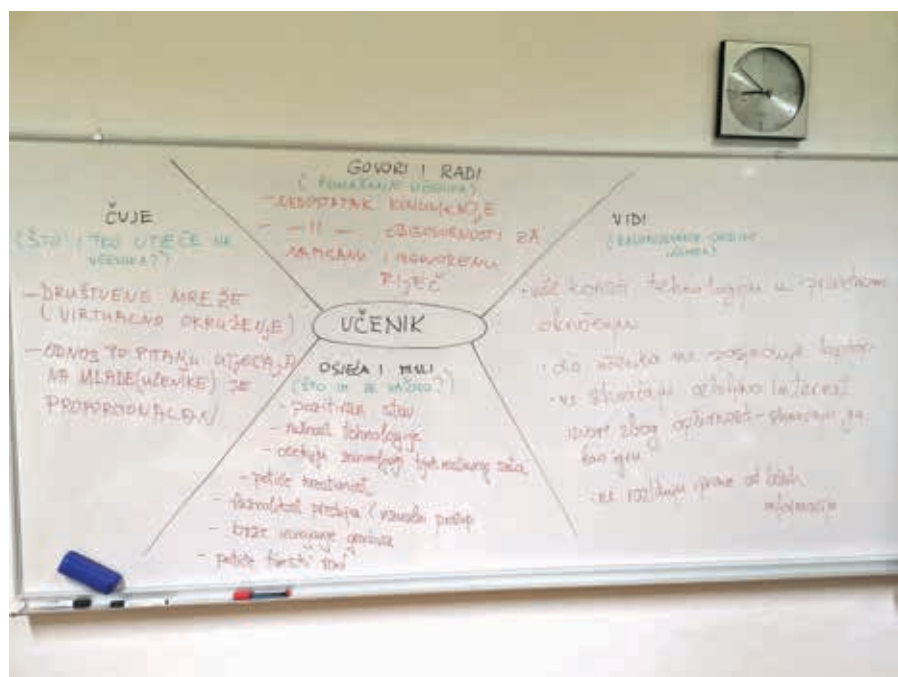 GOVORI I RADI
(PONAŠANJE UČENIKA)
- NEDOSTATAK KOMUNIKACIJE
- -11- ODGOVORNOSTI ZA
NAPISANU I IZGOVORENU
RIJEČ
ČUJE
(ŠTO I TKO UTJEČE NA
UČENIKA??)
- DRUŠTVENE MREŽE
(VIRTUALNO OKRUŽENJE)
- ODNOS PO PITANJU UTJECAJA
NA MLADE (UČENIKE) JE
PROPORCIONALAN
UČENIK
VIDI
- više koristi tehnologiju u privatnom
okruženju
- dio učenika ne posjeduje laptop
- ne shvaćaju ozbiljno Internet
izvore zbog opširnosti - shvaćaju ga
kao igru
- ne razlikuju prave od lažnih
informacija
OSJEĆA I MISLI
(ŠTO IM JE VAŽNO?)
- pozitivan stav
- nužnost tehnologije
- očekuju zanimljiviji tijek nastavnog sata
- potiče kreativnost
- raznolikost pristupa (vizualni pristup
- brže usvajanje gradiva
- potiče timski rad